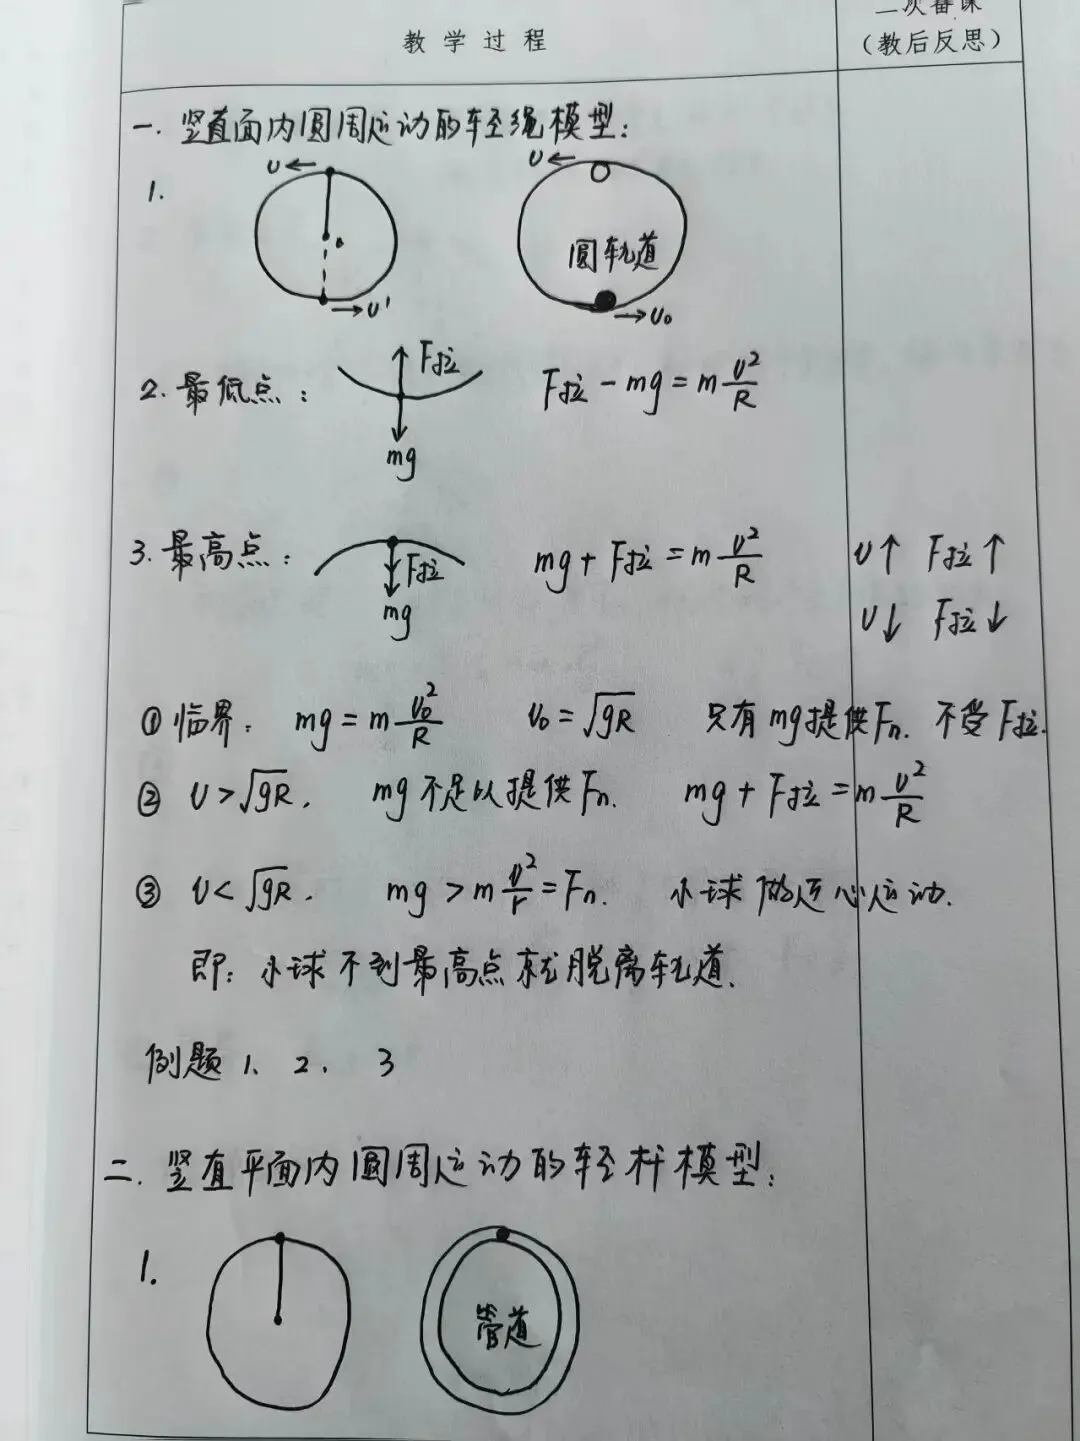 二次备课
教学过程
（教后反思）
一. 竖直面内圆周运动的轻绳模型：
1.
υ← υ←
圆轨道
→υ' →υ₀
2. 最低点： F拉 mg F拉 - mg = m υ²/R
3. 最高点： F拉 mg mg + F拉 = m υ²/R υ↑ F拉↑
υ↓ F拉↓
① 临界： mg = m υ₀²/R υ₀ = √gR 只有mg提供Fn. 不受F拉.
② υ > √gR. mg不足以提供Fn. mg + F拉 = m υ²/R
③ υ < √gR. mg > m υ²/r = Fn. 小球做近心运动.
即：小球不到最高点就脱离轨道.
例题 1、2. 3
二. 竖直平面内圆周运动的轻杆模型：
1.
管道